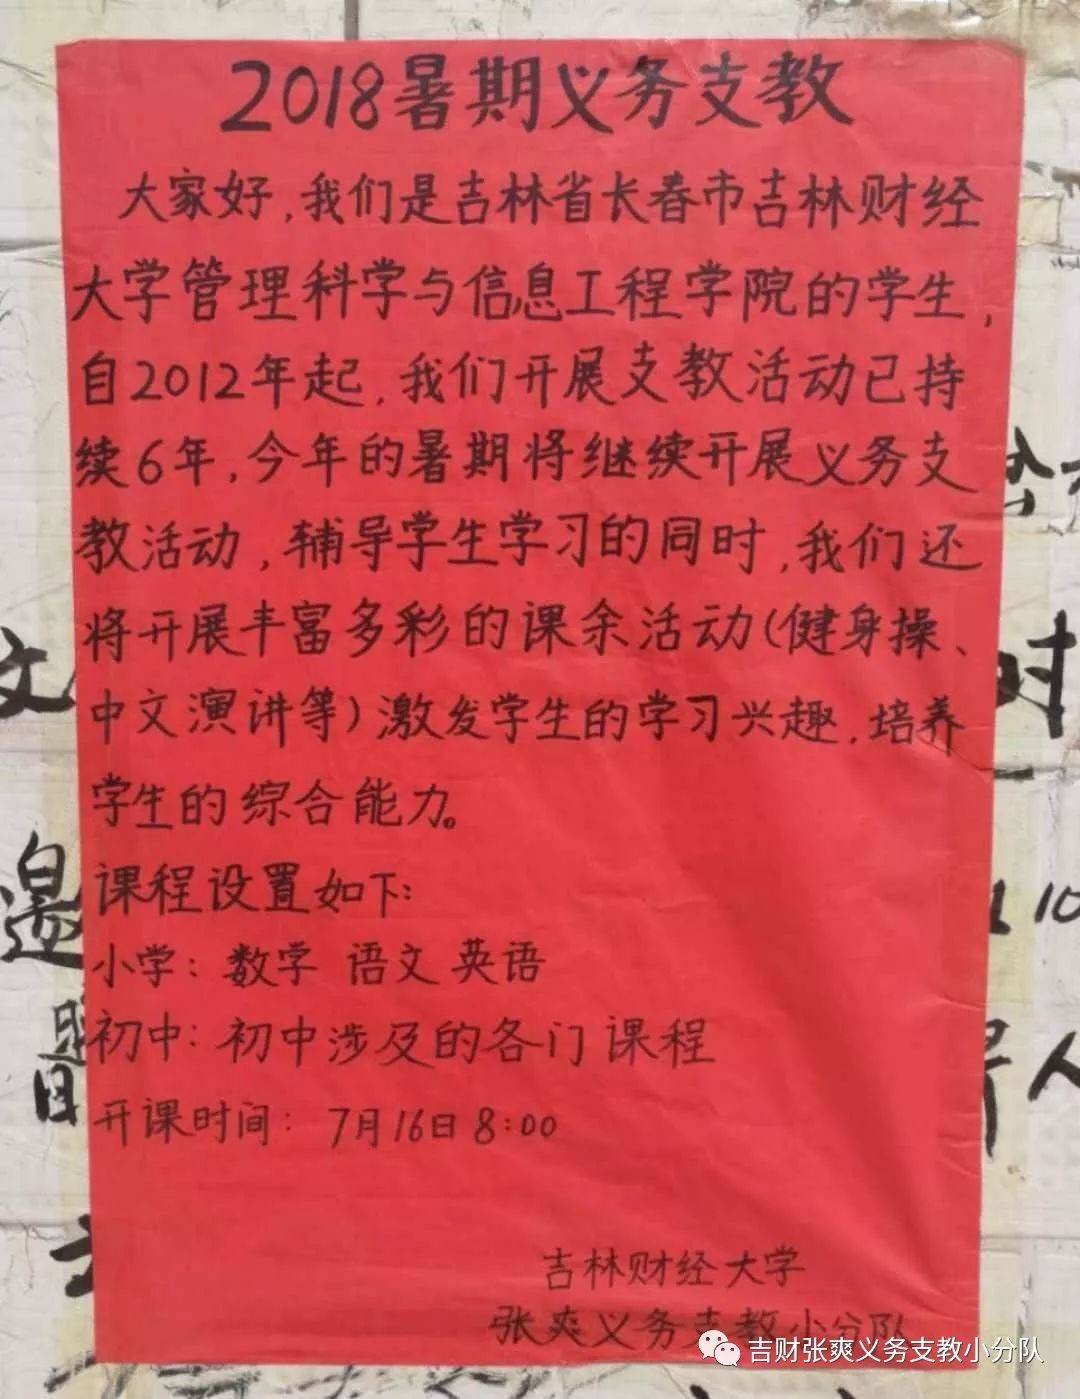 2018暑期义务支教
大家好,我们是吉林省长春市吉林财经
大学管理科学与信息工程学院的学生,
自2012年起,我们开展支教活动已持
续6年,今年的暑期将继续开展义务支
教活动,辅导学生学习的同时,我们还
将开展丰富多彩的课余活动(健身操、
中文演讲等)激发学生的学习兴趣,培养
学生的综合能力。
课程设置如下:
小学: 数学 语文 英语
初中: 初中涉及的各门课程
开课时间: 7月16日 8:00
吉林财经大学
张爽义务支教小分队
吉财张爽义务支教小分队
文
时
邀
10
人